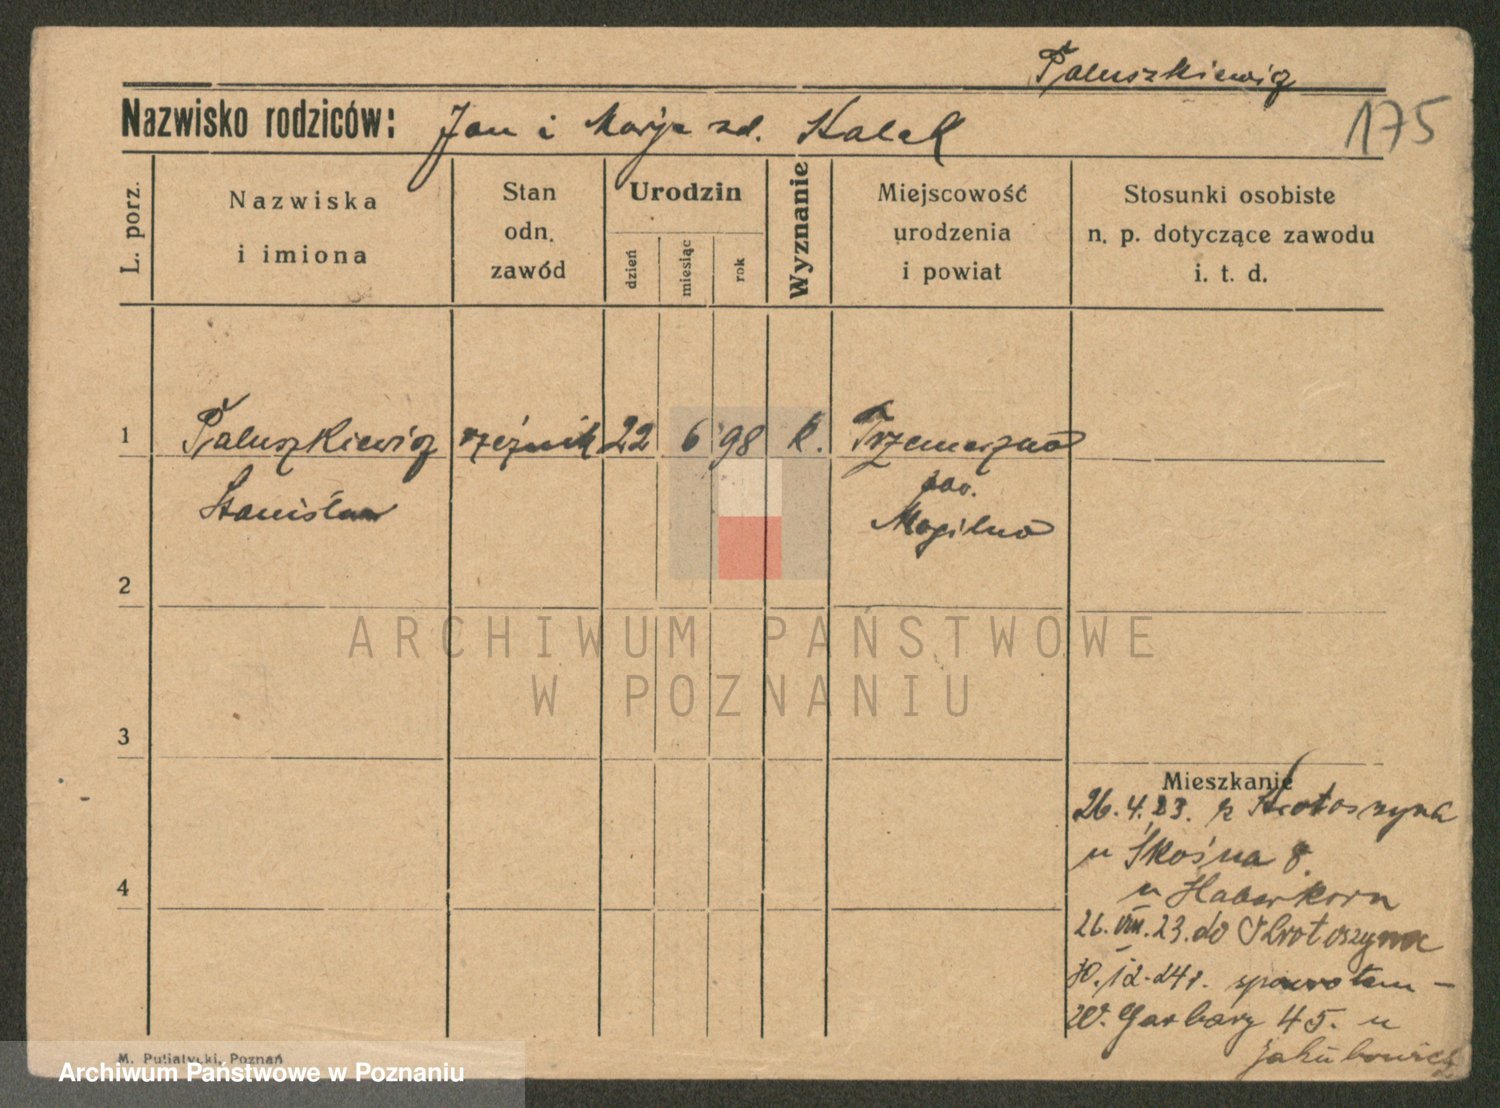 Paluszkiewicz
175
Nazwisko rodziców: Jan i Marja zd.
L. porz.
Nazwiska
i imiona
Stan
odn.
zawód
Urodzin
dzień
miesiąc
rok
Wyznanie
Miejscowość
urodzenia
i powiat
Stosunki osobiste
n. p. dotyczące zawodu
i. t. d.
1 Paluszkiewicz rzeźnik 22 6 98 k. Trzemeszno
Stanisław
pow.
Mogilno
2
ARCHIWUM PAŃSTWOWE
W POZNANIU
3
Mieszkanie
26.4.23. z Krotoszyna
u Skośna 8.
u Haberkorn
4
26.VIII.23. do Krotoszyna
30.12.24r. spowrotem -
W. Garbary 45. u
Jakubowicz
M. Putiatycki, Poznań
Archiwum Państwowe w Poznaniu